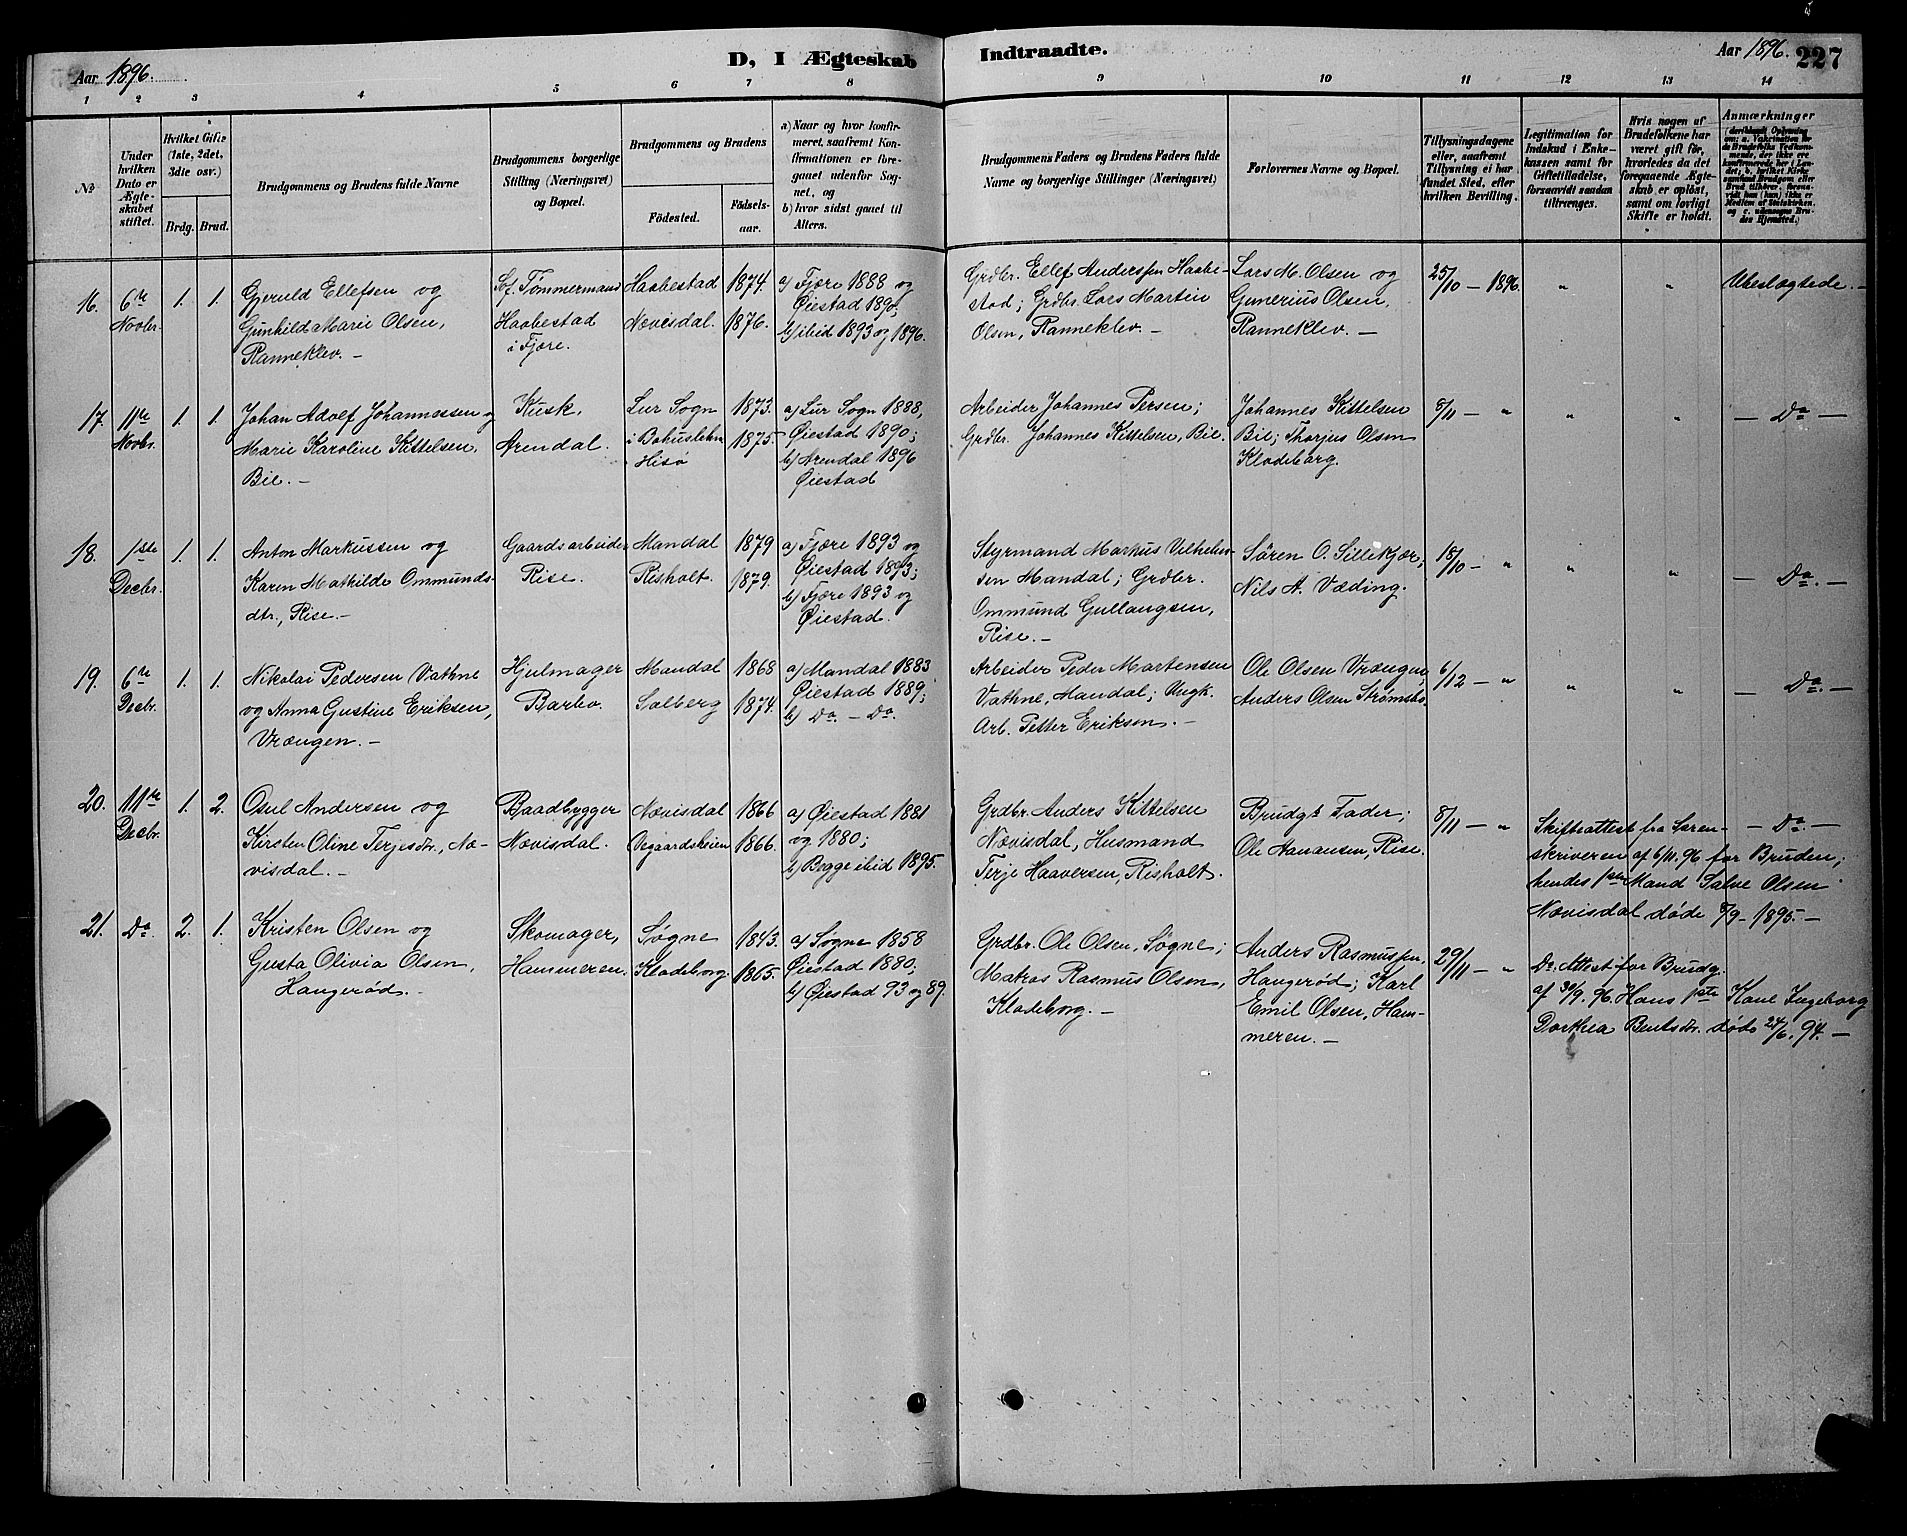 Aar 1896.
D, I Ægteskab Indtraadte.
Aar 1896. 227
1 2 3 4 5 6 7 8 9 10 11 12 13 14
No
Under hvilken Dato er Ægteskabet stiftet.
Hvilket Gifte (1ste, 2det, 3die osv.)
Brdg. Brud.
Brudgommens og Brudens fulde Navne
Brudgommens borgerlige Stilling (Næringsvei) og Bopæl.
Brudgommens og Brudens
Födested. Födselsaar.
a) Naar og hvor konfirmeret, saafremt Konfirmationen er foregaaet udenfor Sognet, og
b) hvor sidst gaaet til Alters.
Brudgommens Faders og Brudens Faders fulde Navne og borgerlige Stillinger (Næringsvei)
Forlovernes Navne og Bopæl.
Tillysningsdagene eller, saafremt Tillysning ei har fundet Sted, efter hvilken Bevilling.
Legitimation for Indskud i Enkekassen samt for Giftetilladelse, forsaavidt saadan tiltrænges.
Hvis nogen af Brudefolkene har været gift för, hvorledes da det foregaaende Ægteskab er oplöst, samt om lovligt Skifte er holdt.
Anmærkninger
16. 6te Novbr. 1. 1.
Gjeruld Ellefsen og
Gunhilda Marie Olsen,
Ranneklev. –
Tømmermand
Haabestad
i Fjære.
Haabestad 1874.
Nævisdal. 1876.
a) Fjære 1888 og
Øiestad 1890;
b) ibid 1893 og 1896.
Grdbr. Ellef Anderssen Haabe-
stad; Grdbr. Lars Martin
Olsen, Ranneklev. –
Lars M. Olsen og
Gunerius Olsen,
Ranneklev. –
25/10 – 1896.
" "
Ubeslægtede. –
17. 11te Novbr. 1. 1.
Johan Adolf Johannessen og
Marie Karoline Kittelsen,
Bie. –
Kusk,
Arendal.
Lur Sogn 1873.
i Bohuslehn
Hisö 1875.
a) Lur Sogn 1888,
Øiestad 1890;
b) Arendal 1896
Øiestad
Arbeider Johannes Persen;
Grdbr. Johannes Kittelsen, Bie.
Johannes Kittelsen
Bie; Thorjus Olsen
Klodeborg.
8/11 – "
" "
– Do –
18. 1ste Decbr. 1. 1.
Anton Markussen og
Karen Mathilde Ommunds-
dtr., Rise. –
Gaardsarbeider
Rise.
Mandal 1879
Risholt. 1879.
a) Fjære 1893 og
Øiestad 1893;
b) Fjære 1893 og
Øiestad.
Styrmand Markus Vilhelm-
sen Mandal; Grdbr.
Ommund Gullaugsen,
Rise. –
Søren O. Sillekjær,
Nils A. Væding.
18/10 – "
" "
– Do. –
19. 6te Decbr. 1. 1.
Nikolai Pedersen Vathne
og Anna Gustine Eriksen,
Vrængen. –
Hjulmager
Barbo.
Mandal 1868
Solberg 1874.
a) Mandal 1883
Øiestad 1889;
b) Do. – Do.
Arbeider Peder Martensen
Vathne, Mandal; Ungk.
Arb. Petter Eriksen. –
Ole Olsen Vrængen,
Anders Olsen Strømsbo.
6/12 – "
" "
– Do. –
20. 11te Decbr. 1. 2.
Osul Andersen og
Kirsten Oline Terjesdtr., Næ-
visdal. –
Baadbygger
Nævisdal.
Nævisdal 1866
Vegaardsheien 1866.
a) Øiestad 1881
og 1880;
b) Begge ibid 1895.
Grdbr. Anders Kittelsen
Nævisdal, Husmand
Terje Haaversen, Risholt.
Brudgs Fader;
Ole Hanansen, Rise.
8/11 – "
– Do. –
Skifteattest fra Soren-
skriveren af 6/11. 96 for Bruden;
hendes 1ste Mand Salve Olsen
Nævisdal døde 8/9 – 1895. –
21. Do. 2. 1.
Kristen Olsen og
Gusta Olivia Olsen,
Haugerød. –
Skomager,
Hammeren.
Søgne 1843.
Klodeborg. 1865.
a) Søgne 1858
Øiestad 1880;
b) Øiestad 93 og 89.
Grdbr. Ole Olsen, Søgne;
Matros Rasmus Olsen,
Klodeborg. –
Anders Rasmussen,
Haugerød; Karl
Emil Olsen, Ham-
meren. –
29/11 – "
Do. Attest for Brudg.
af 30/9. 96. Hans 1ste Kone Ingeborg
Dorthea Bentsdtr. døde 24/6. 94. –